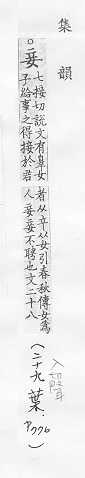 集韻
○妾 七接切說文有辠女
子給事之得接於君
者从䇂从女引春秋傳女為
人妾妾不聘也文二十八
(二十九葉:
P776)
入聲